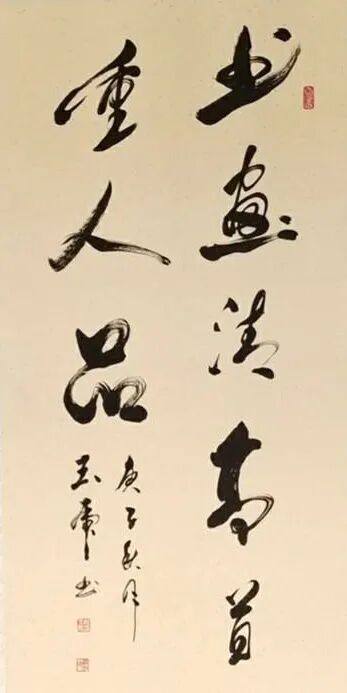 书画清高首
重人品
庚子月
玉书